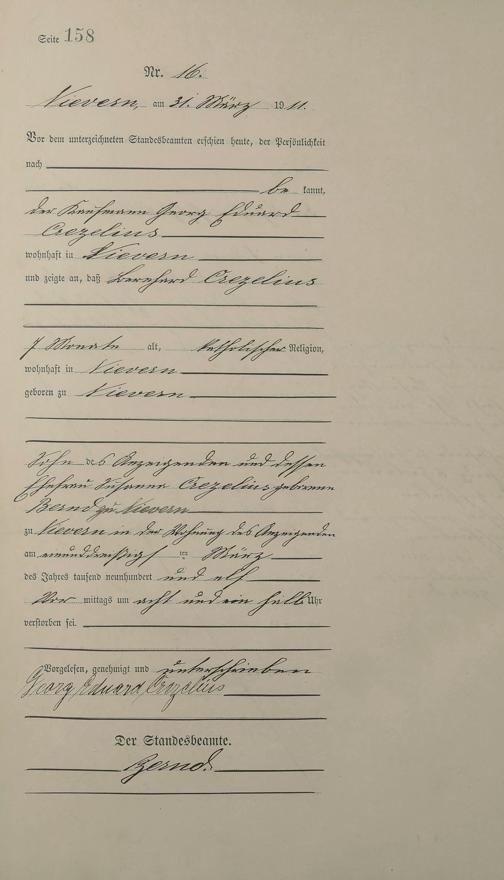 Seite 158
Nr. 16.
Nievern, am 31. März 1911.
Vor dem unterzeichneten Standesbeamten erschien heute, der Persönlichkeit
nach
be kannt,
der Kaufmann Georg Eduard
Crezelius
wohnhaft in Nievern
und zeigte an, daß Bernhard Crezelius
7 Monate alt, katholischer Religion,
wohnhaft in Nievern
geboren zu Nievern
Sohn des Anzeigenden und dessen
Ehefrau Susanna Crezelius geborene
Bernd zu Nievern
zu Nievern in der Wohnung des Anzeigenden
am ten März
des Jahres tausend neunhundert und elf
Vor mittags um acht und ein halb Uhr
verstorben sei.
Vorgelesen, genehmigt und unterschrieben
Georg Eduard Crezelius
Der Standesbeamte.
Bernd.